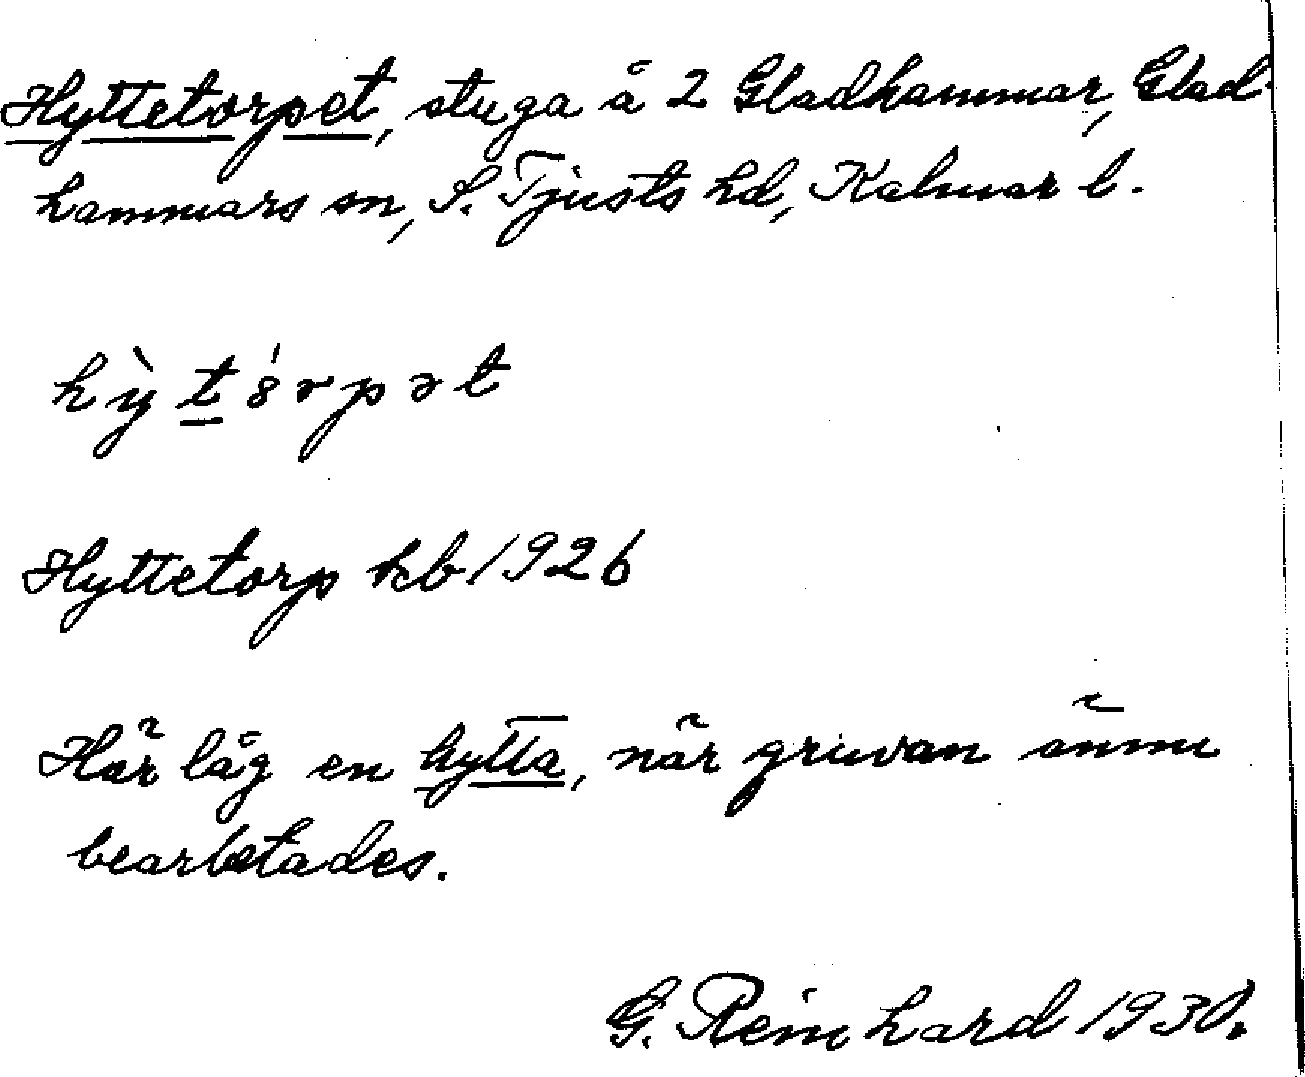 Hyttetorpet, stuga å 2 Gladhammar, Glad-
hammars sn, S. Tjusts hd, Kalmar l.
hy̏t̠8́rpət
Hyttetorp kb 1926
Här låg en hytta, när gruvan ännu
bearbetades.
G. Reinhard 1930.